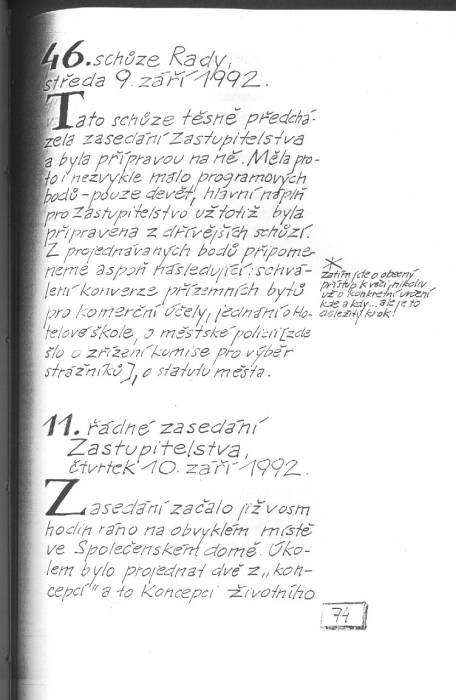 46. schůze Rady,
středa 9. září 1992.
Tato schůze těsně předchá-
zela zasedání Zastupitelstva
a byla přípravou na ně. Měla pro-
to i nezvykle málo programových
bodů - pouze devět, hlavní náplň
pro Zastupitelstvo už totiž byla
připravena z dřívějších schůzí.
Z projednávaných bodů připome-
neme aspoň následující: schvá-
lení konverze přízemních bytů
pro komerční účely, jednání o Ho-
telové škole, o městské policii [zde
šlo o zřízení komise pro výběr
strážníků], o statutu města.
*
zatím jde o obecný
přístup k věci, nikoliv
už o konkrétní určení
kde a kdy... ale je to
důležitý krok!
11. řádné zasedání
Zastupitelstva,
čtvrtek 10. září 1992.
Zasedání začalo již v osm
hodin ráno na obvyklém místě
ve Společenském domě. Úko-
lem bylo projednat dvě z „kon-
cepcí" a to Koncepci životního
74